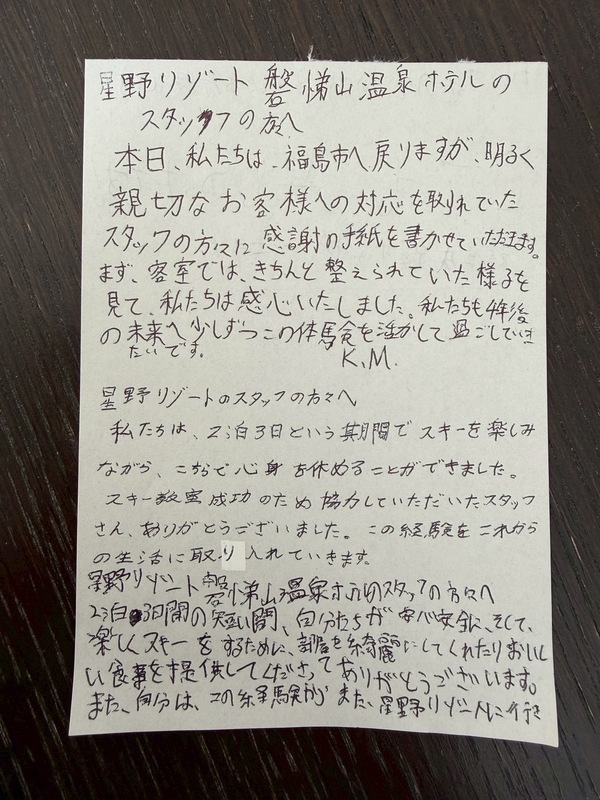 星野リゾート 磐梯山温泉ホテルの
スタッフの方々へ
本日、私たちは、福島市へ戻りますが、明るく
親切なお客様への対応を取れていた
スタッフの方々に感謝の手紙を書かせていただきます。
まず、客室では、きちんと整えられていた様子を
見て、私たちは感心いたしました。私たちも4年後
の未来へ少しずつこの体験を活かして過ごしていき
たいです。 K.M.
星野リゾートのスタッフの方々へ
私たちは、2泊3日という期間でスキーを楽しみ
ながら、こちらで心身を休めることができました。
スキー教室成功のため協力していただいたスタッフ
さん、ありがとうございました。この経験をこれから
の生活に取り入れていきます。
星野リゾート磐梯山温泉ホテルのスタッフの方々へ
2泊3日間の短い間、自分たちが安心安全に、そして、
楽しくスキーをするために、部屋を綺麗にしてくれたりおいし
い食事を提供してくださってありがとうございます。
また、自分は、この経験から また、星野リゾートに行き